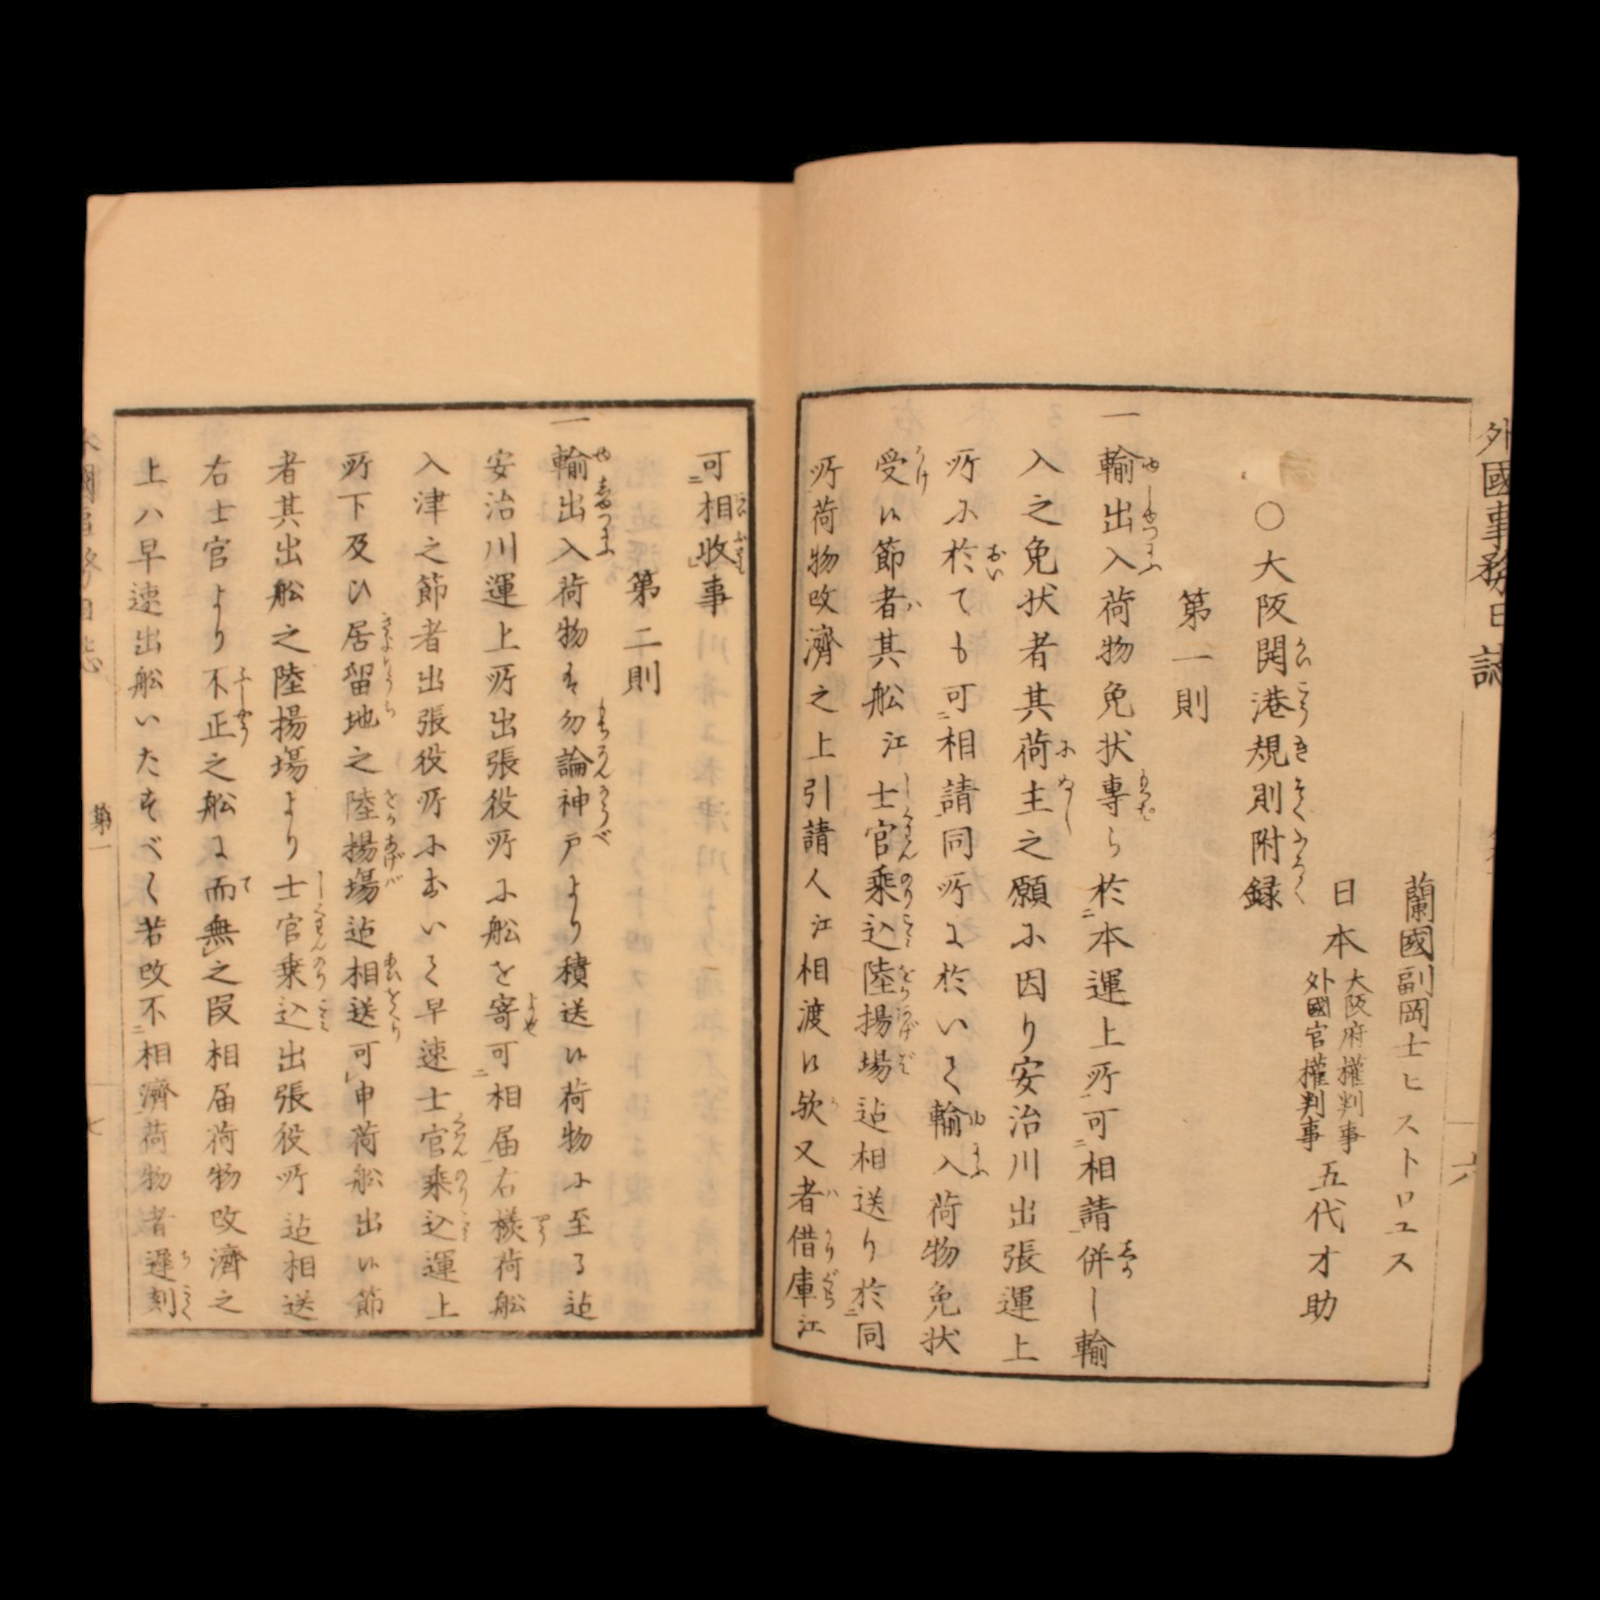 外國事務日誌
六
蘭國副岡士ヒストロユス
日本 大阪府權判事 外國官權判事 五代才助
○大阪開港規則附録
第一則
一輸出入荷物免状專ら於本運上所可相請併し輸
入之免状者其荷主之願に因り安治川出張運上
所に於ても可相請同所に於いて輸入荷物免状
受候節者其船江士官乗込陸揚場迠相送り於同
所荷物改濟之上引請人江相渡候欤又者借庫江
可相收事
第二則
一輸出入荷物は勿論神戸より積送候荷物に至る迠
安治川運上所出張役所に船を寄可相届右様荷船
入津之節者出張役所において早速士官乗込運上
所下及ひ居留地之陸揚場迠相送可申荷船出候節
者其出船之陸揚場より士官乗込出張役所迠相送
右士官より不正之船に而無之段相届荷物改濟之
上ハ早速出船いたすべく若改不相濟荷物者遲刻
第一
七